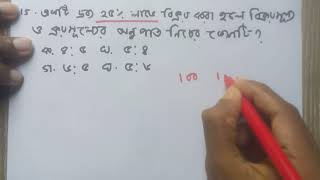 ১৫. একটি দ্রব্য ২৫% লাভে বিক্রয় করা হলে বিক্রয়মূল্য
ও ক্রয়মূল্যের অনুপাত নিচের কোনটি-?
ক. ৪:৫ খ. ৫:৪
গ. ৬:৫ ঘ. ৫:৬
১০০